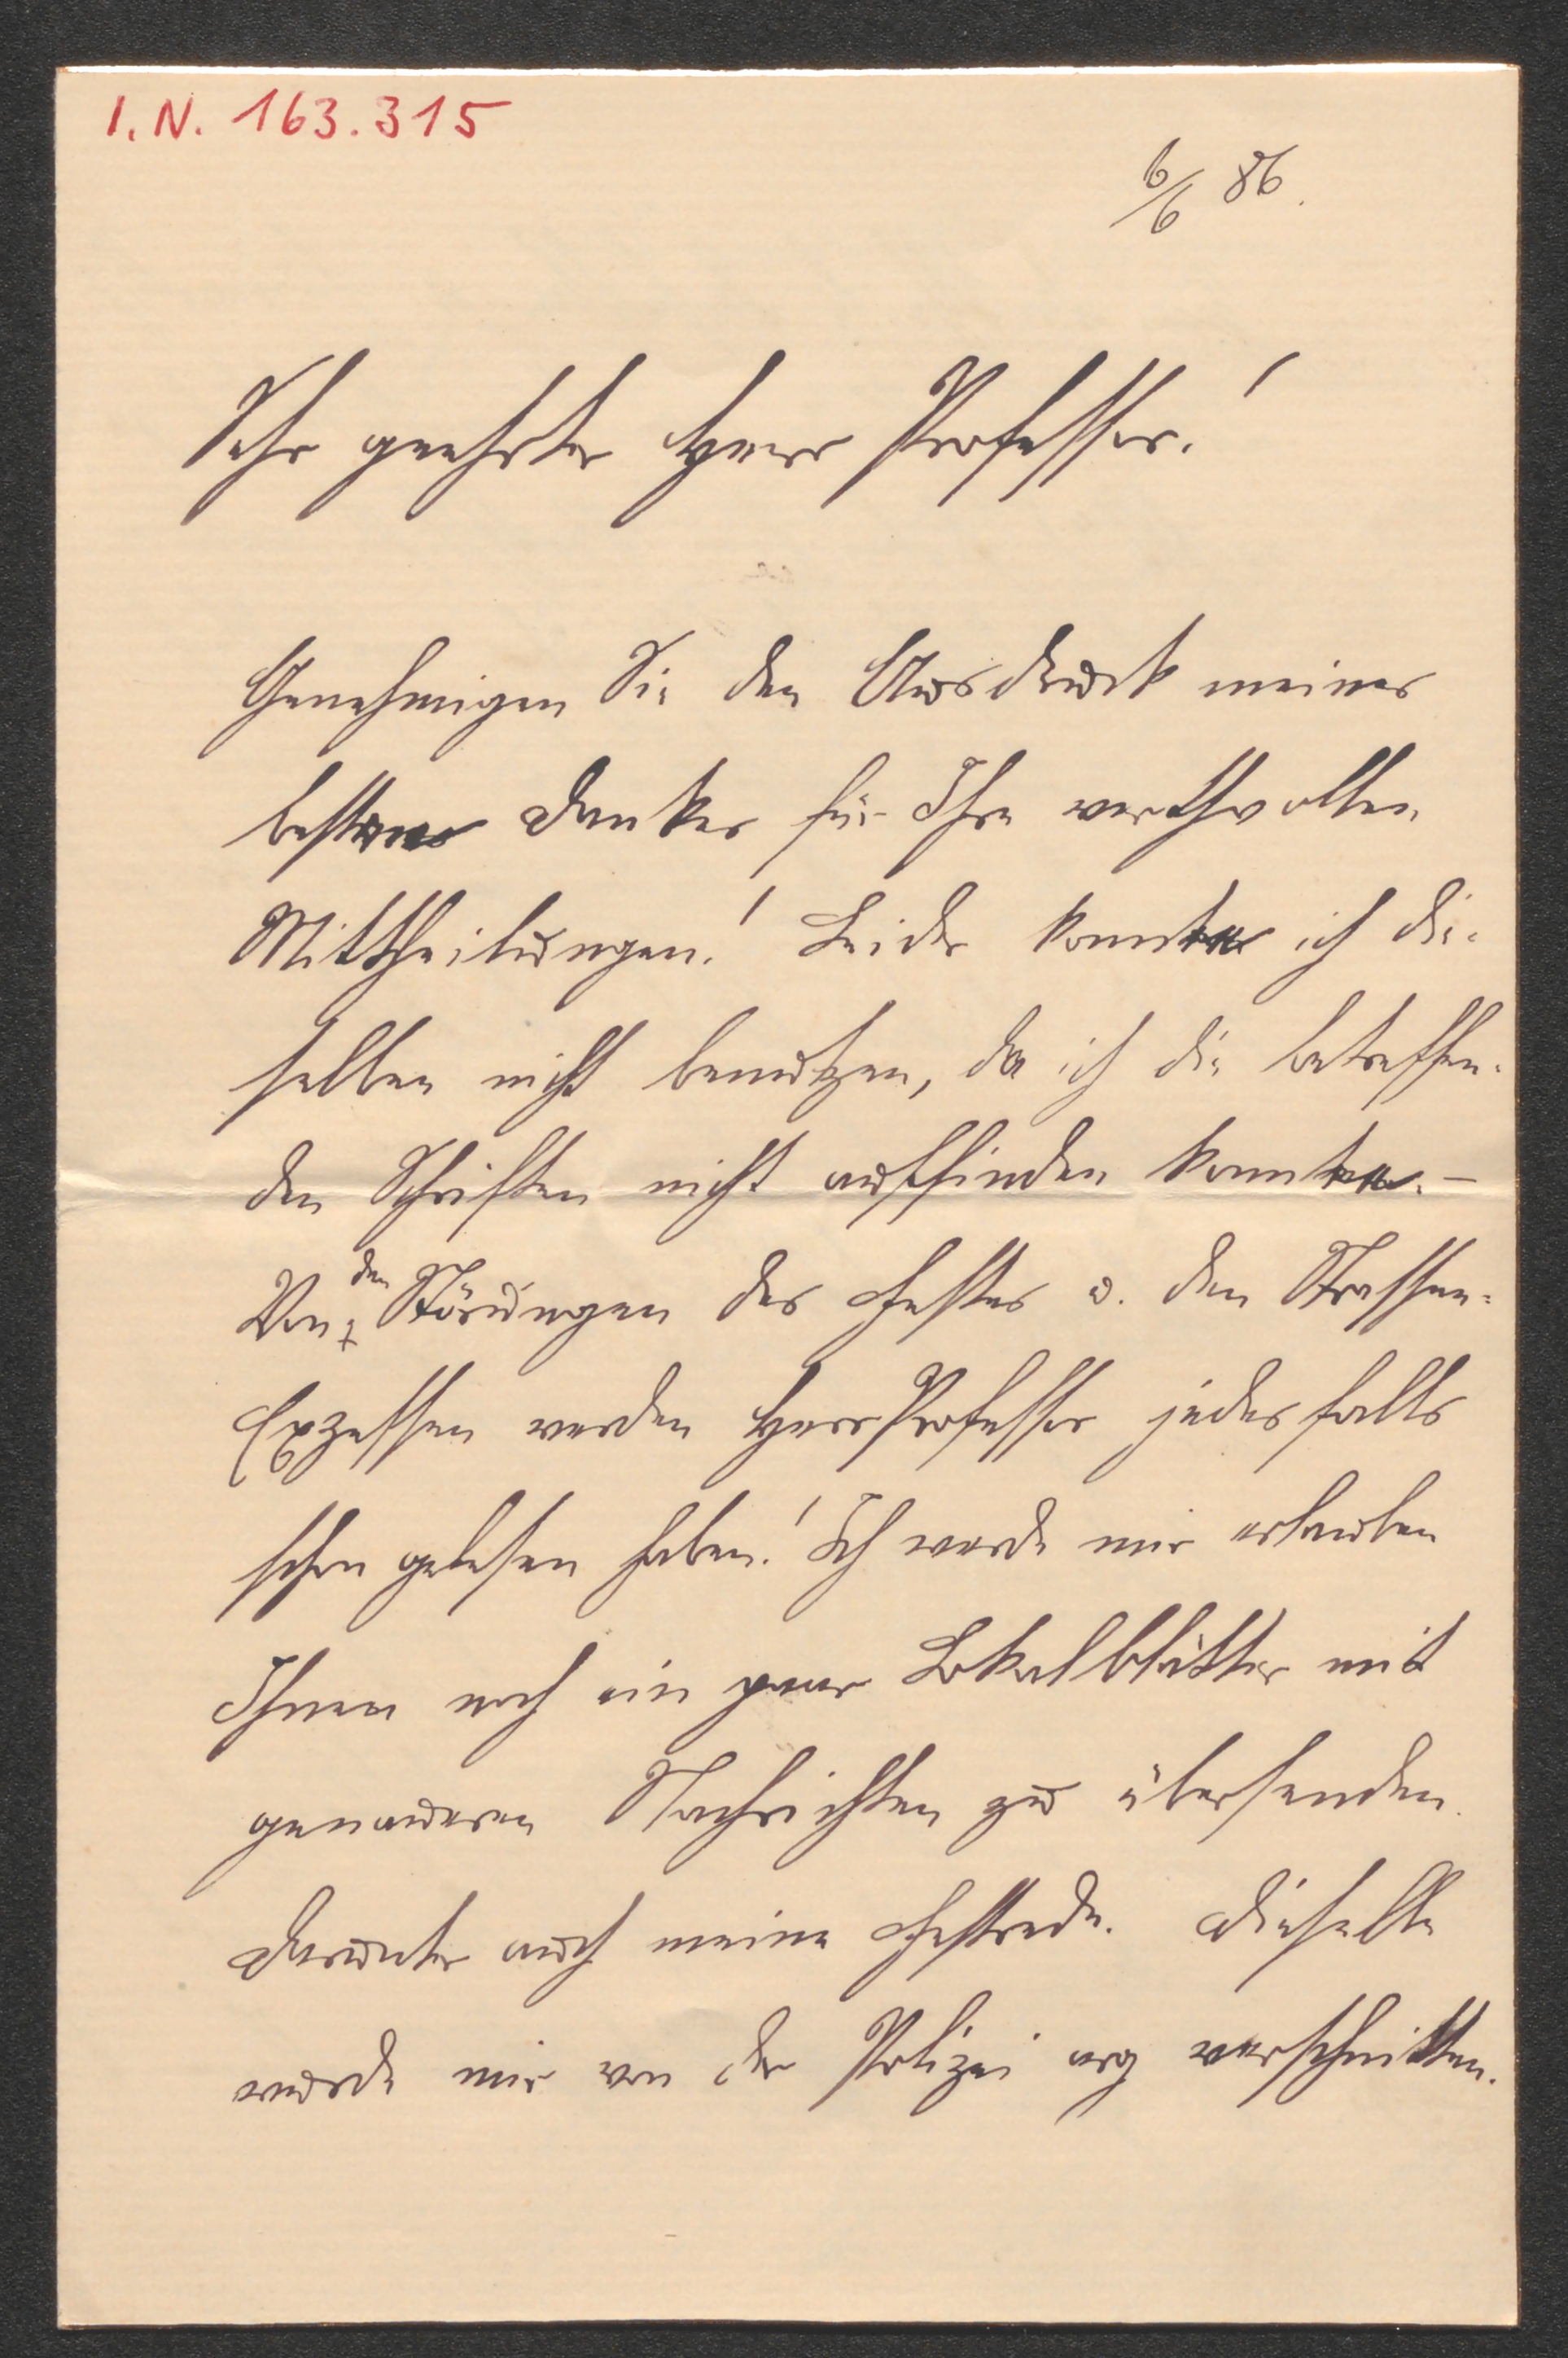 I. N. 163.315
6/6 86.
Sehr geehrter Herr Professor!
Genehmigen Sie den Ausdruck meines
besten Dankes für Ihre werthvollen
Mittheilungen! Leider konnte ich die-
selben nicht benutzen, da ich die betreffen-
den Schriften nicht auffinden konnte. –
Von den Störungen des Festes u. den Strassen-
Exzessen werden Herr Professor jedesfalls
schon gelesen haben! Ich werde mir erlauben
Ihnen noch ein paar Lokalblätter mit
genaueren Nachrichten zu übersenden.
Darunter auch meine Festrede. Dieselbe
wurde mir von der Polizei arg verschnitten.